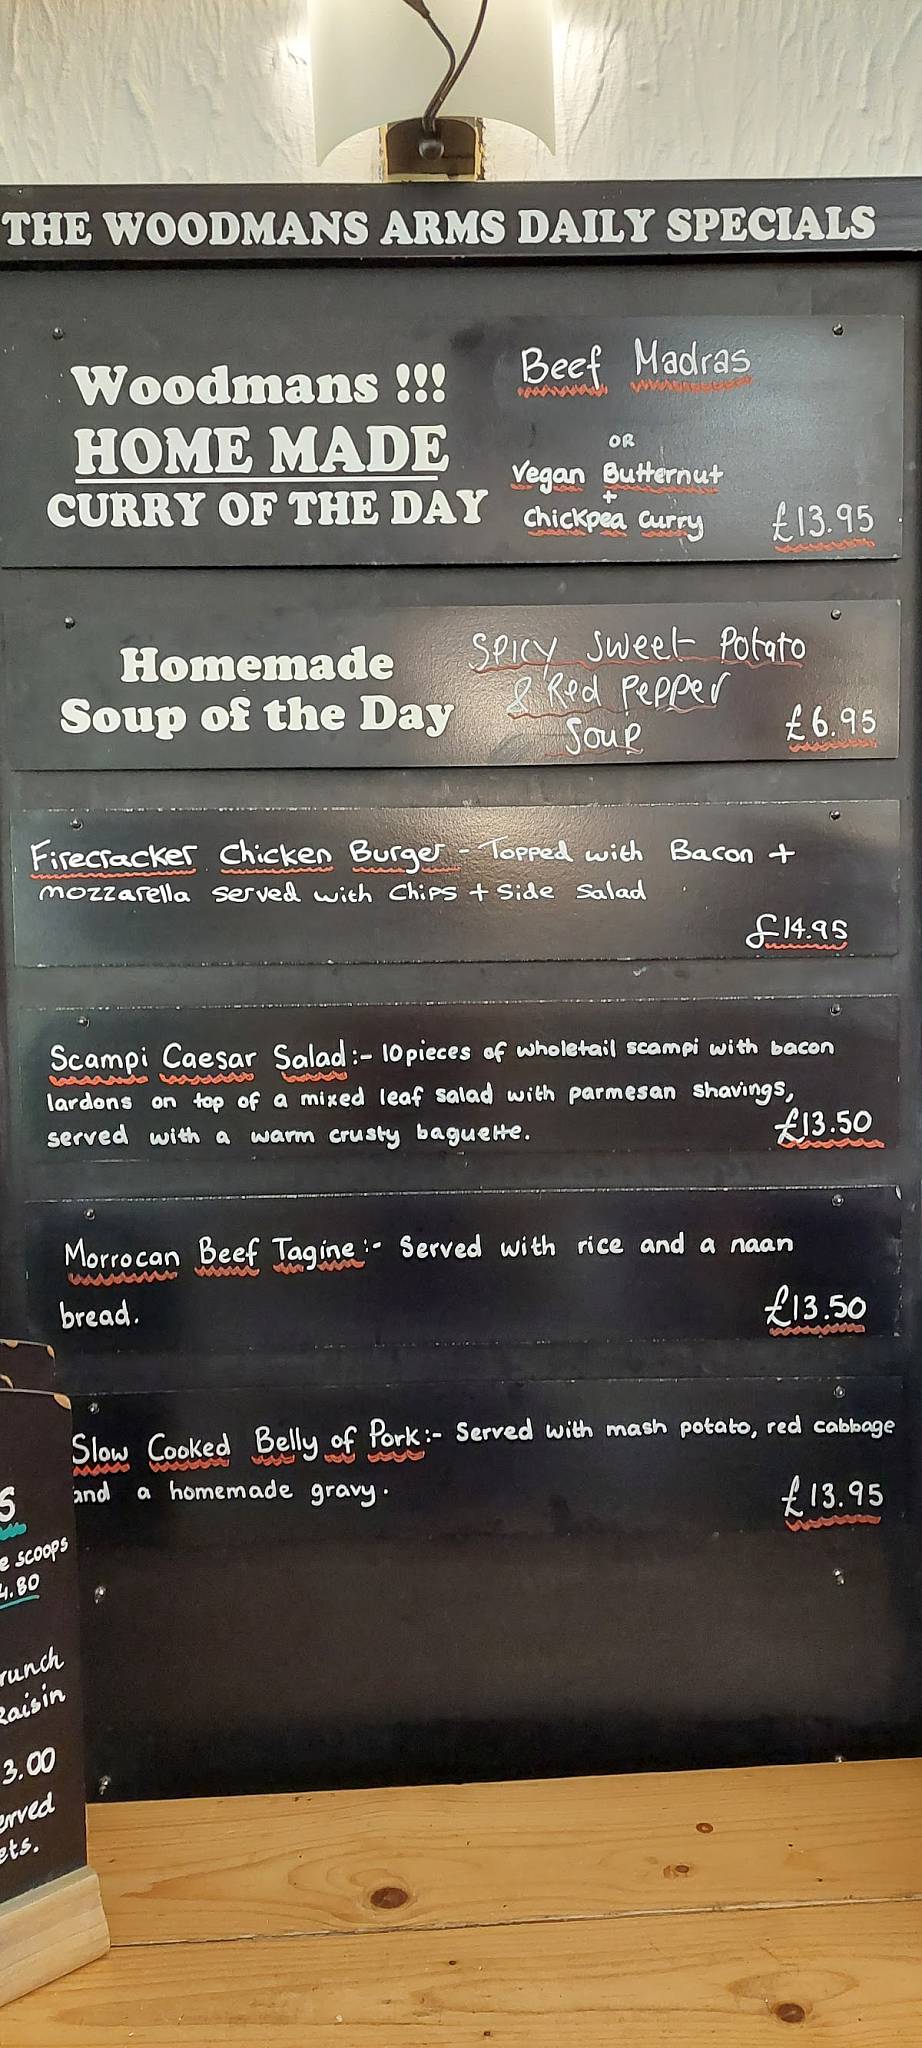 THE WOODMANS ARMS DAILY SPECIALS
Woodmans !!!
HOME MADE
CURRY OF THE DAY
Beef Madras
OR
Vegan Butternut
+
Chickpea Curry
£13.95
Homemade
Soup of the Day
Spicy Sweet Potato
& Red Pepper
Soup
£6.95
Firecracker Chicken Burger - Topped with Bacon +
mozzarella served with Chips + Side Salad
£14.95
Scampi Caesar Salad:- 10 pieces of wholetail scampi with bacon
lardons on top of a mixed leaf salad with parmesan shavings,
served with a warm crusty baguette.
£13.50
Morrocan Beef Tagine:- Served with rice and a naan
bread.
£13.50
Slow Cooked Belly of Pork:- Served with mash potato, red cabbage
and a homemade gravy.
£13.95
scoops
4.80
Raisin
3.00